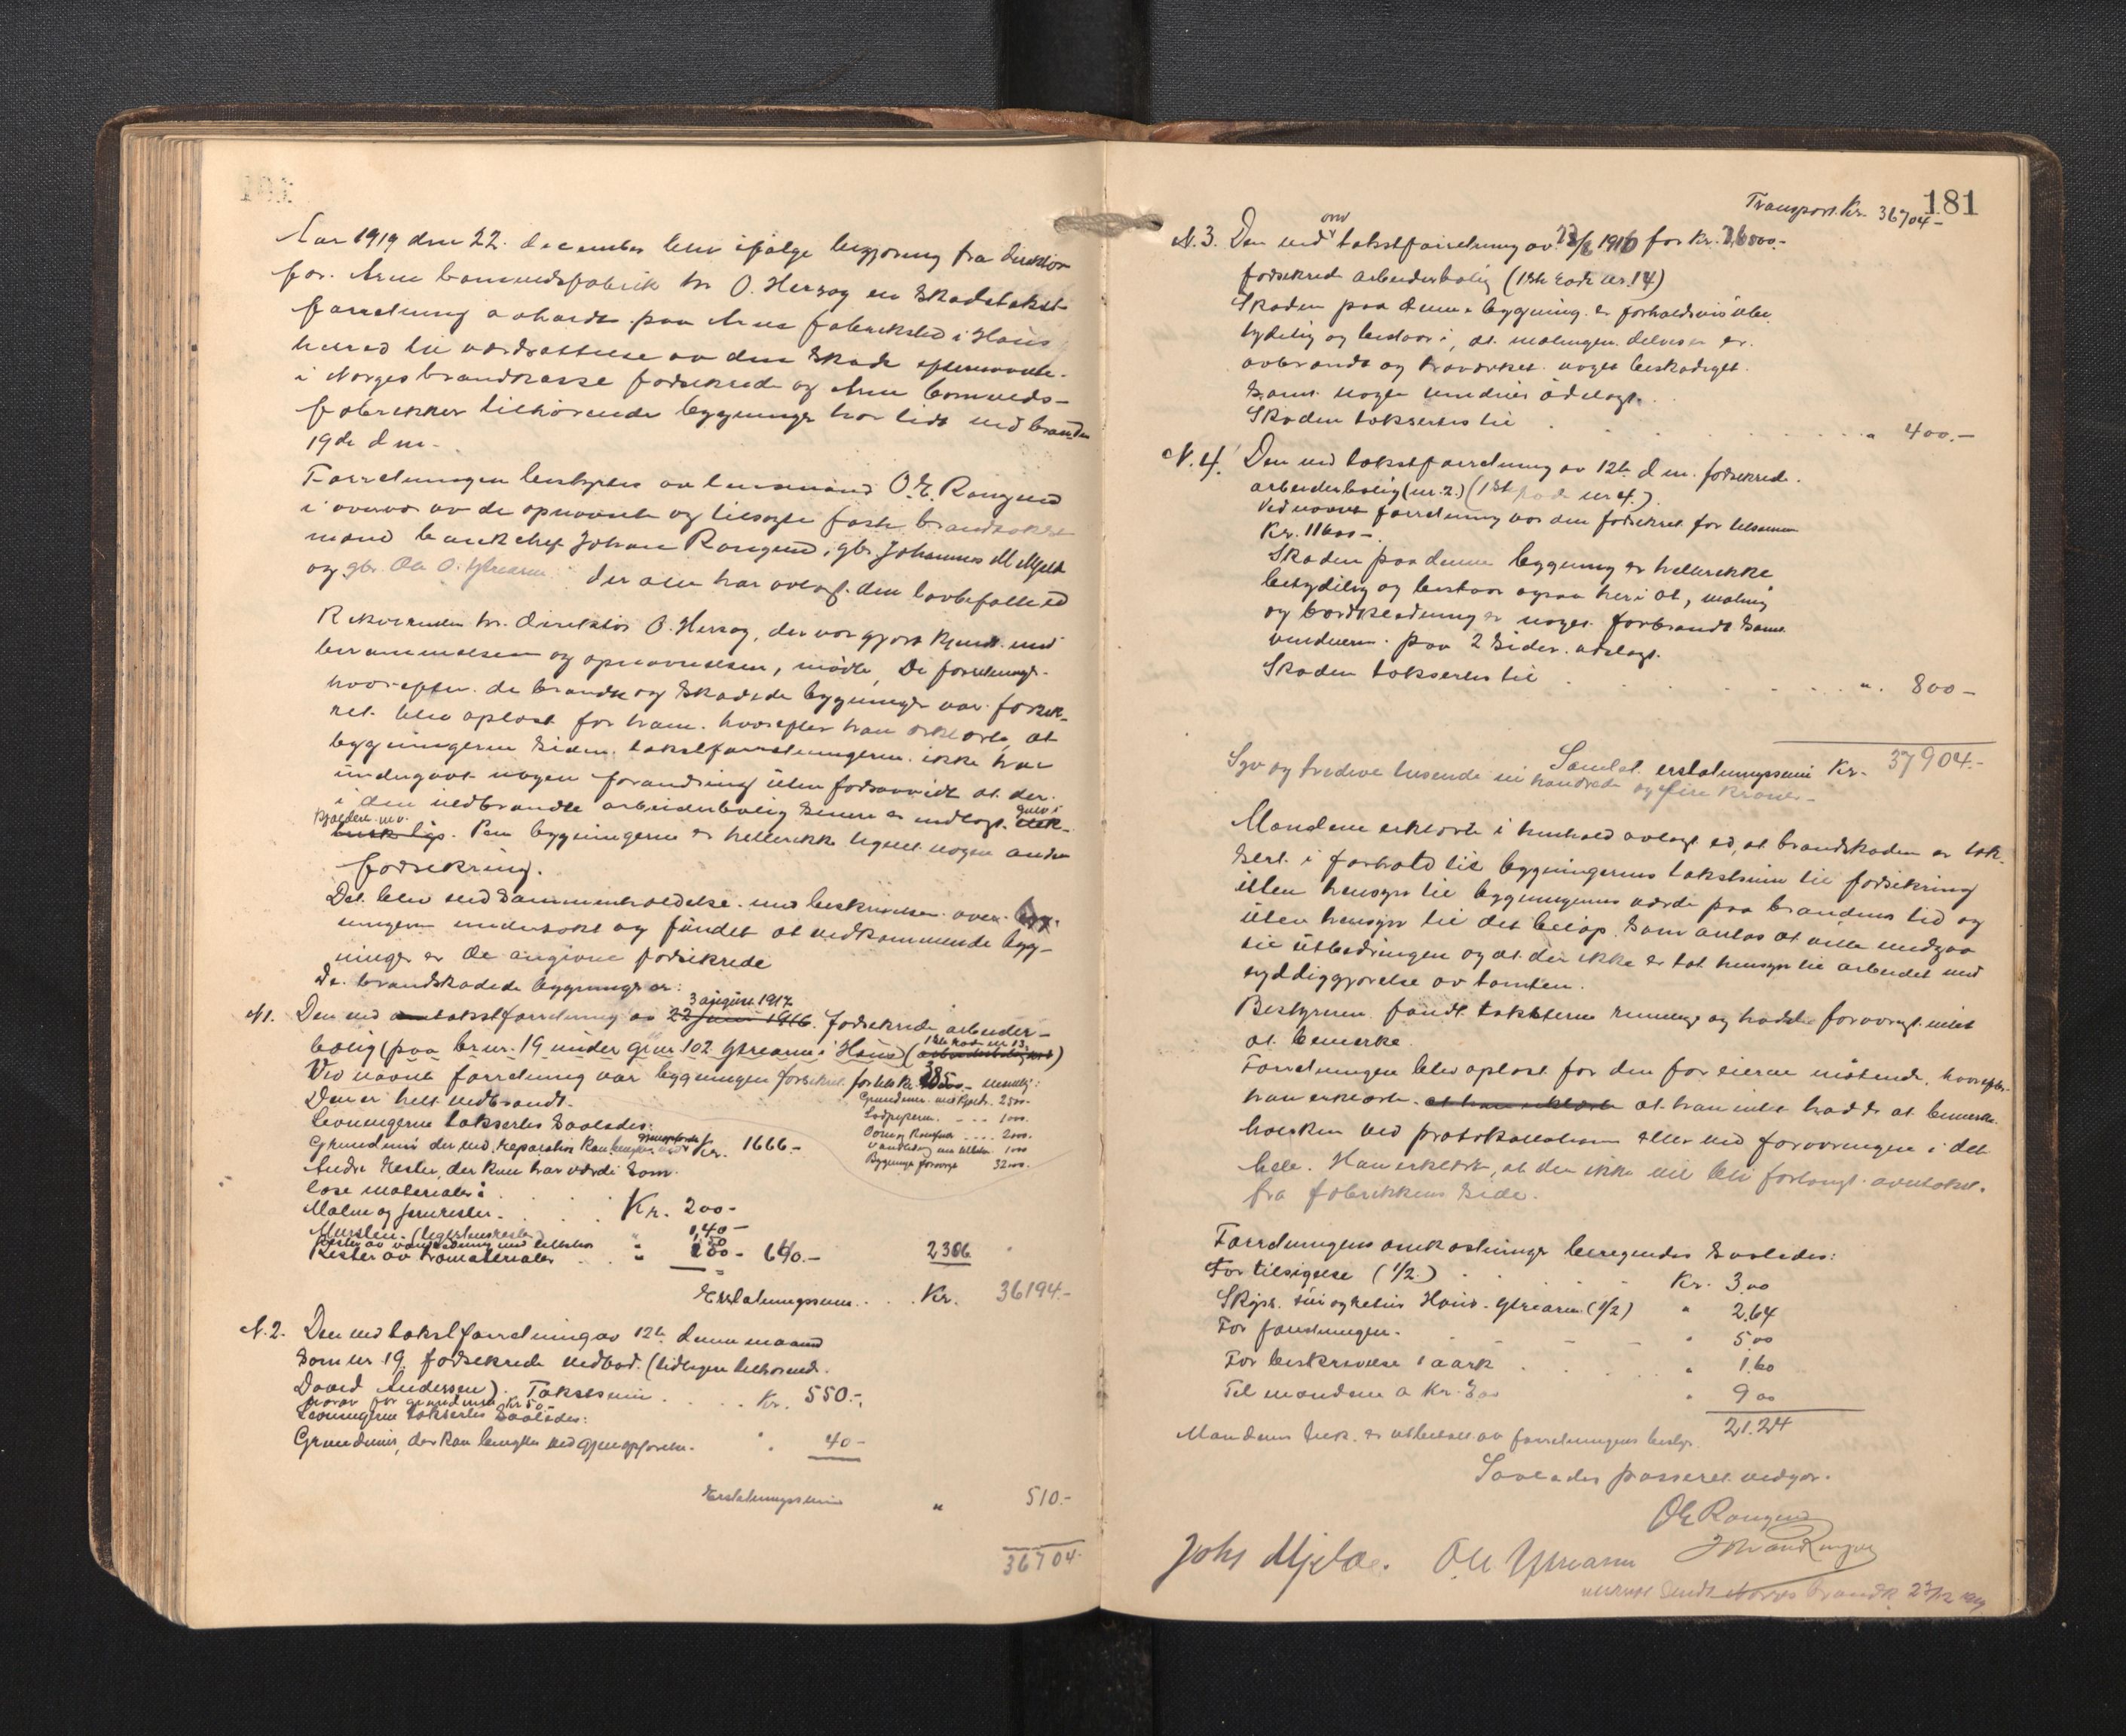 Aar 1919 den 22. december blev ifølge begjæring fra direktør
for Arne bomuldsfabrik hr O. Herzog en skadetakst-
forretning avholdt paa Arne fabriksted i Haus
herred til værdsættelse av den skade efternævnte
i Norges brandkasse forsikrede og Arne bomulds-
fabrikker tilhørende bygninger har lidt ved branden
19de d m.
Forretningen bestyrtes av lensmand O. E. Rongved
i overvær av de opnævnte og tilsagte faste brandtakst
mænd bankchef Johan Rongved, gbr. Johannes M Mjelde
og gbr. Ole O. Ytrearne der alle har avlagt den lovbefalte ed
Rekvirenten hr. direktør O. Herzog, der var gjort kjendt med
berammelsen og opnævnelsen, møtte. De forretninger
hvorefter de brandte og skadede bygninger var forsik-
ret blev oplæst for ham, hvorefter han erklærte, at
bygningerne siden takstforretningerne ikke har
undergaat nogen forandring uten forsaavidt at der
i den nedbrændte arbeiderbolig senere er indlagt gulv i
kjælderen m.v. elek-
trisk lys. Paa bygningerne er hellerikke tegnet nogen anden
forsikring.
Det blev ved sammenholdelse med beskrivelsen over byg-
ningerne undersøkt og fundet at vedkommende byg-
ninger er de angivne forsikrede
De brandskadede bygninger er:
3 august 1917
N1. Den ved takstforretning av 22 juni 1916 forsikrede arbeider-
bolig (paa br.nr. 19 under gnr. 102 Ytrearne i Haus) (
Ved nævnte forretning var bygningen forsikret for tils. kr. 38500- nemlig:
Den er helt nedbrændt. Grundmur med kjeld. 2500-
Levningerne taksertes saaledes: Lodpiperne 1000-
Grundmur der ved reparation kan benyttes Kr. 1666.- Ovne og Komfyrer 2000-
Andre rester, der kun har værdi som Vandledning med tilbehør 1000
løse materialer: Bygninge forøvrig 32000-
Malm og jernrester. Kr. 200-
Mursten (teglstensrester) " 140-
Rester av vandledning med tilbehør " 150
Rester av træmaterialer " 150- 640.- 2306
Erstatningssum Kr. 36194.-
N.2. Den ved takstforretning av 12te denne maaned
som nr 19 forsikrede vedbod (tidligere tilhørende
David Andersen). Takstsum Kr. 550.-
hvorav for grundmur Kr 50-
Levningerne taksertes saaledes:
Grundmur, der kan benyttes ved gjenopførelse " 40-
Erstatningssum " 510.-
36704.-
181
Transport. Kr. 36704-
om
N.3. Den ved takstforretning av 1916 for Kr.
forsikrede arbeiderbolig (1ste kode nr. 14)
Skaden paa denne bygning er forholdsvis ube-
tydelig og bestaar i, at malingen delvis er
avbrændt og træverket noget beskadiget
samt nogen vinduer ødelagt.
Skaden taksertes til " 400.-
N.4. Den ved takstforretning av 12te d m. forsikrede
arbeiderbolig (nr. 2.) (1ste kode nr 4.)
Ved nævnte forretning var den forsikret for tilsammen
Kr. 11600-
Skaden paa denne bygning er hellerikke
betydelig og bestaar ogsaa her i at, maling
og bordklædning er noget forbrændt samt
vinduerne paa 2 sider ødelagt.
Skaden taksertes til ". 800-
Samlet erstatningssum Kr. 37904.-
Syv og tredive tusende ni hundrede og fire kroner-
Mændene erklærte i henhold avlagt ed, at brandskaden er tak-
sert i forhold til bygningernes takstsum til forsikring
uten hensyn til bygningernes værdi paa brandens tid og
uten hensyn til det beløp som antas at ville medgaa
til utbedringen og at der ikke er tat hensyn til arbeidet med
ryddiggjørelse av tomten.
Bestyreren fandt taksterne rimelige og hadde forøvrigt intet
at bemerke.
Forretningen blev oplæst for den for eierne møtende, hvorefter
han erklærte at han erklærte at han intet hadde at bemerke
hverken ved protokollationen eller ved forretningen i det
hele. Han erklærte, at der ikke vil bli forlangt overtakst
fra fabrikkens side.
Forretningens omkostninger beregnedes saaledes:
For tilsigelse (1/2) Kr. 3.00
Skyds tur og retur Haus-Ytrearne (1/2) " 2.64
For forretningen. " 5.00
For beskrivelse 1 aark " 1.60
Til mændene a Kr. 3.00 " 9.00
21.24
Mændenes tilk. er utbetalt av forretningens bestyr.
Saaledes passeret vedgaar.
OE Rongved
Johs Mjelde. O. O. Ytrearne Johan Rongved
utskrift sendt Norges brandk. 23/12 1919